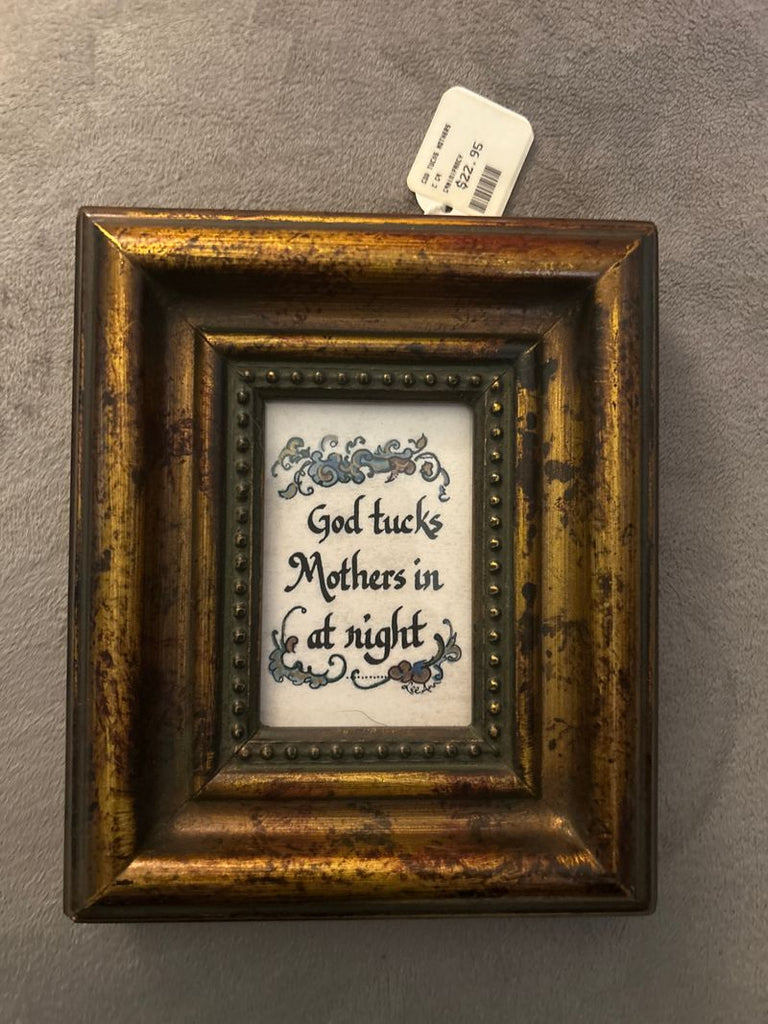 GOD TUCKS MOTHERS
$22.95
God tucks
Mothers in
at night